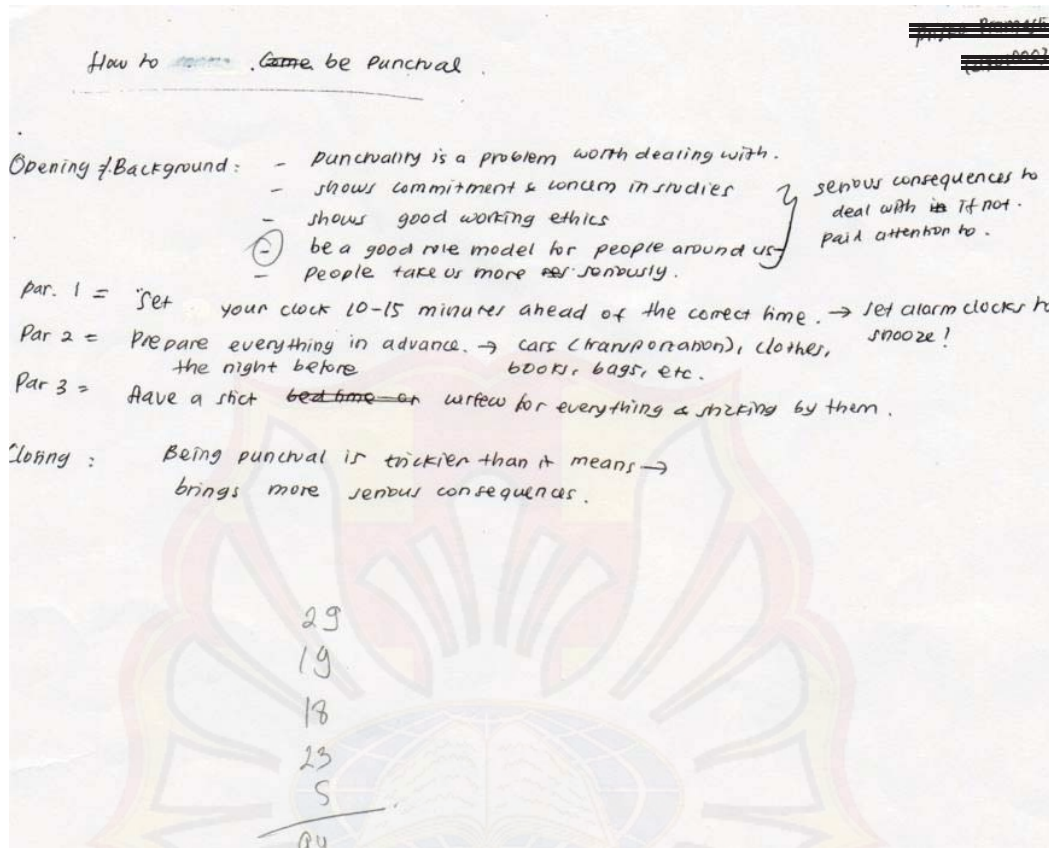 How to be Punctual.
Opening / Background : - Punctuality is a problem worth dealing with.
- shows commitment & concern in studies
- shows good working ethics
- be a good role model for people around us
- people take us more seriously.
serious consequences to
deal with if not
paid attention to.
Par. 1 = Set your clock 10-15 minutes ahead of the correct time. → set alarm clocks to
snooze!
Par 2 = Prepare everything in advance. → cars (transportation), clothes,
the night before books, bags, etc.
Par 3 = Have a strict curfew for everything & sticking by them.
Closing : Being punctual is trickier than it means →
brings more serious consequences.
29
19
18
23
5
94